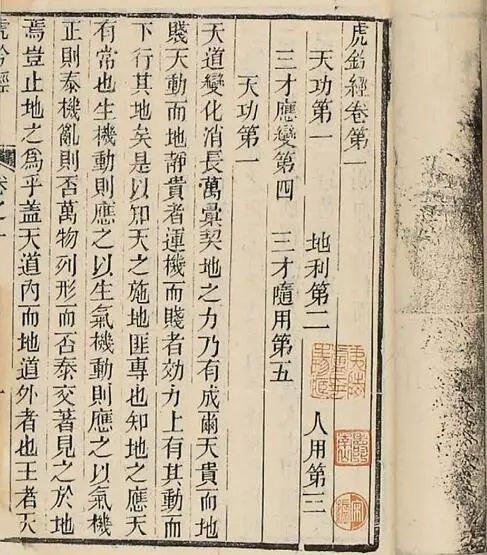 虎鈐經卷第一
天功第一 地利第二 人用第三
三才應變第四 三才隨用第五
天功第一
天道變化消長萬彚契地之力乃有成爾天貴而地
賤天動而地靜貴者運機而賤者効力上有其動而
下行其地矣是以知天之施地匪專也知地之應天
有常也生機動則應之以生氣機動則應之以氣機
正則泰機亂則否萬物列形而否泰交著見之於地
焉豈止地之爲乎蓋天道内而地道外者也王者天
虎鈐經 卷之一